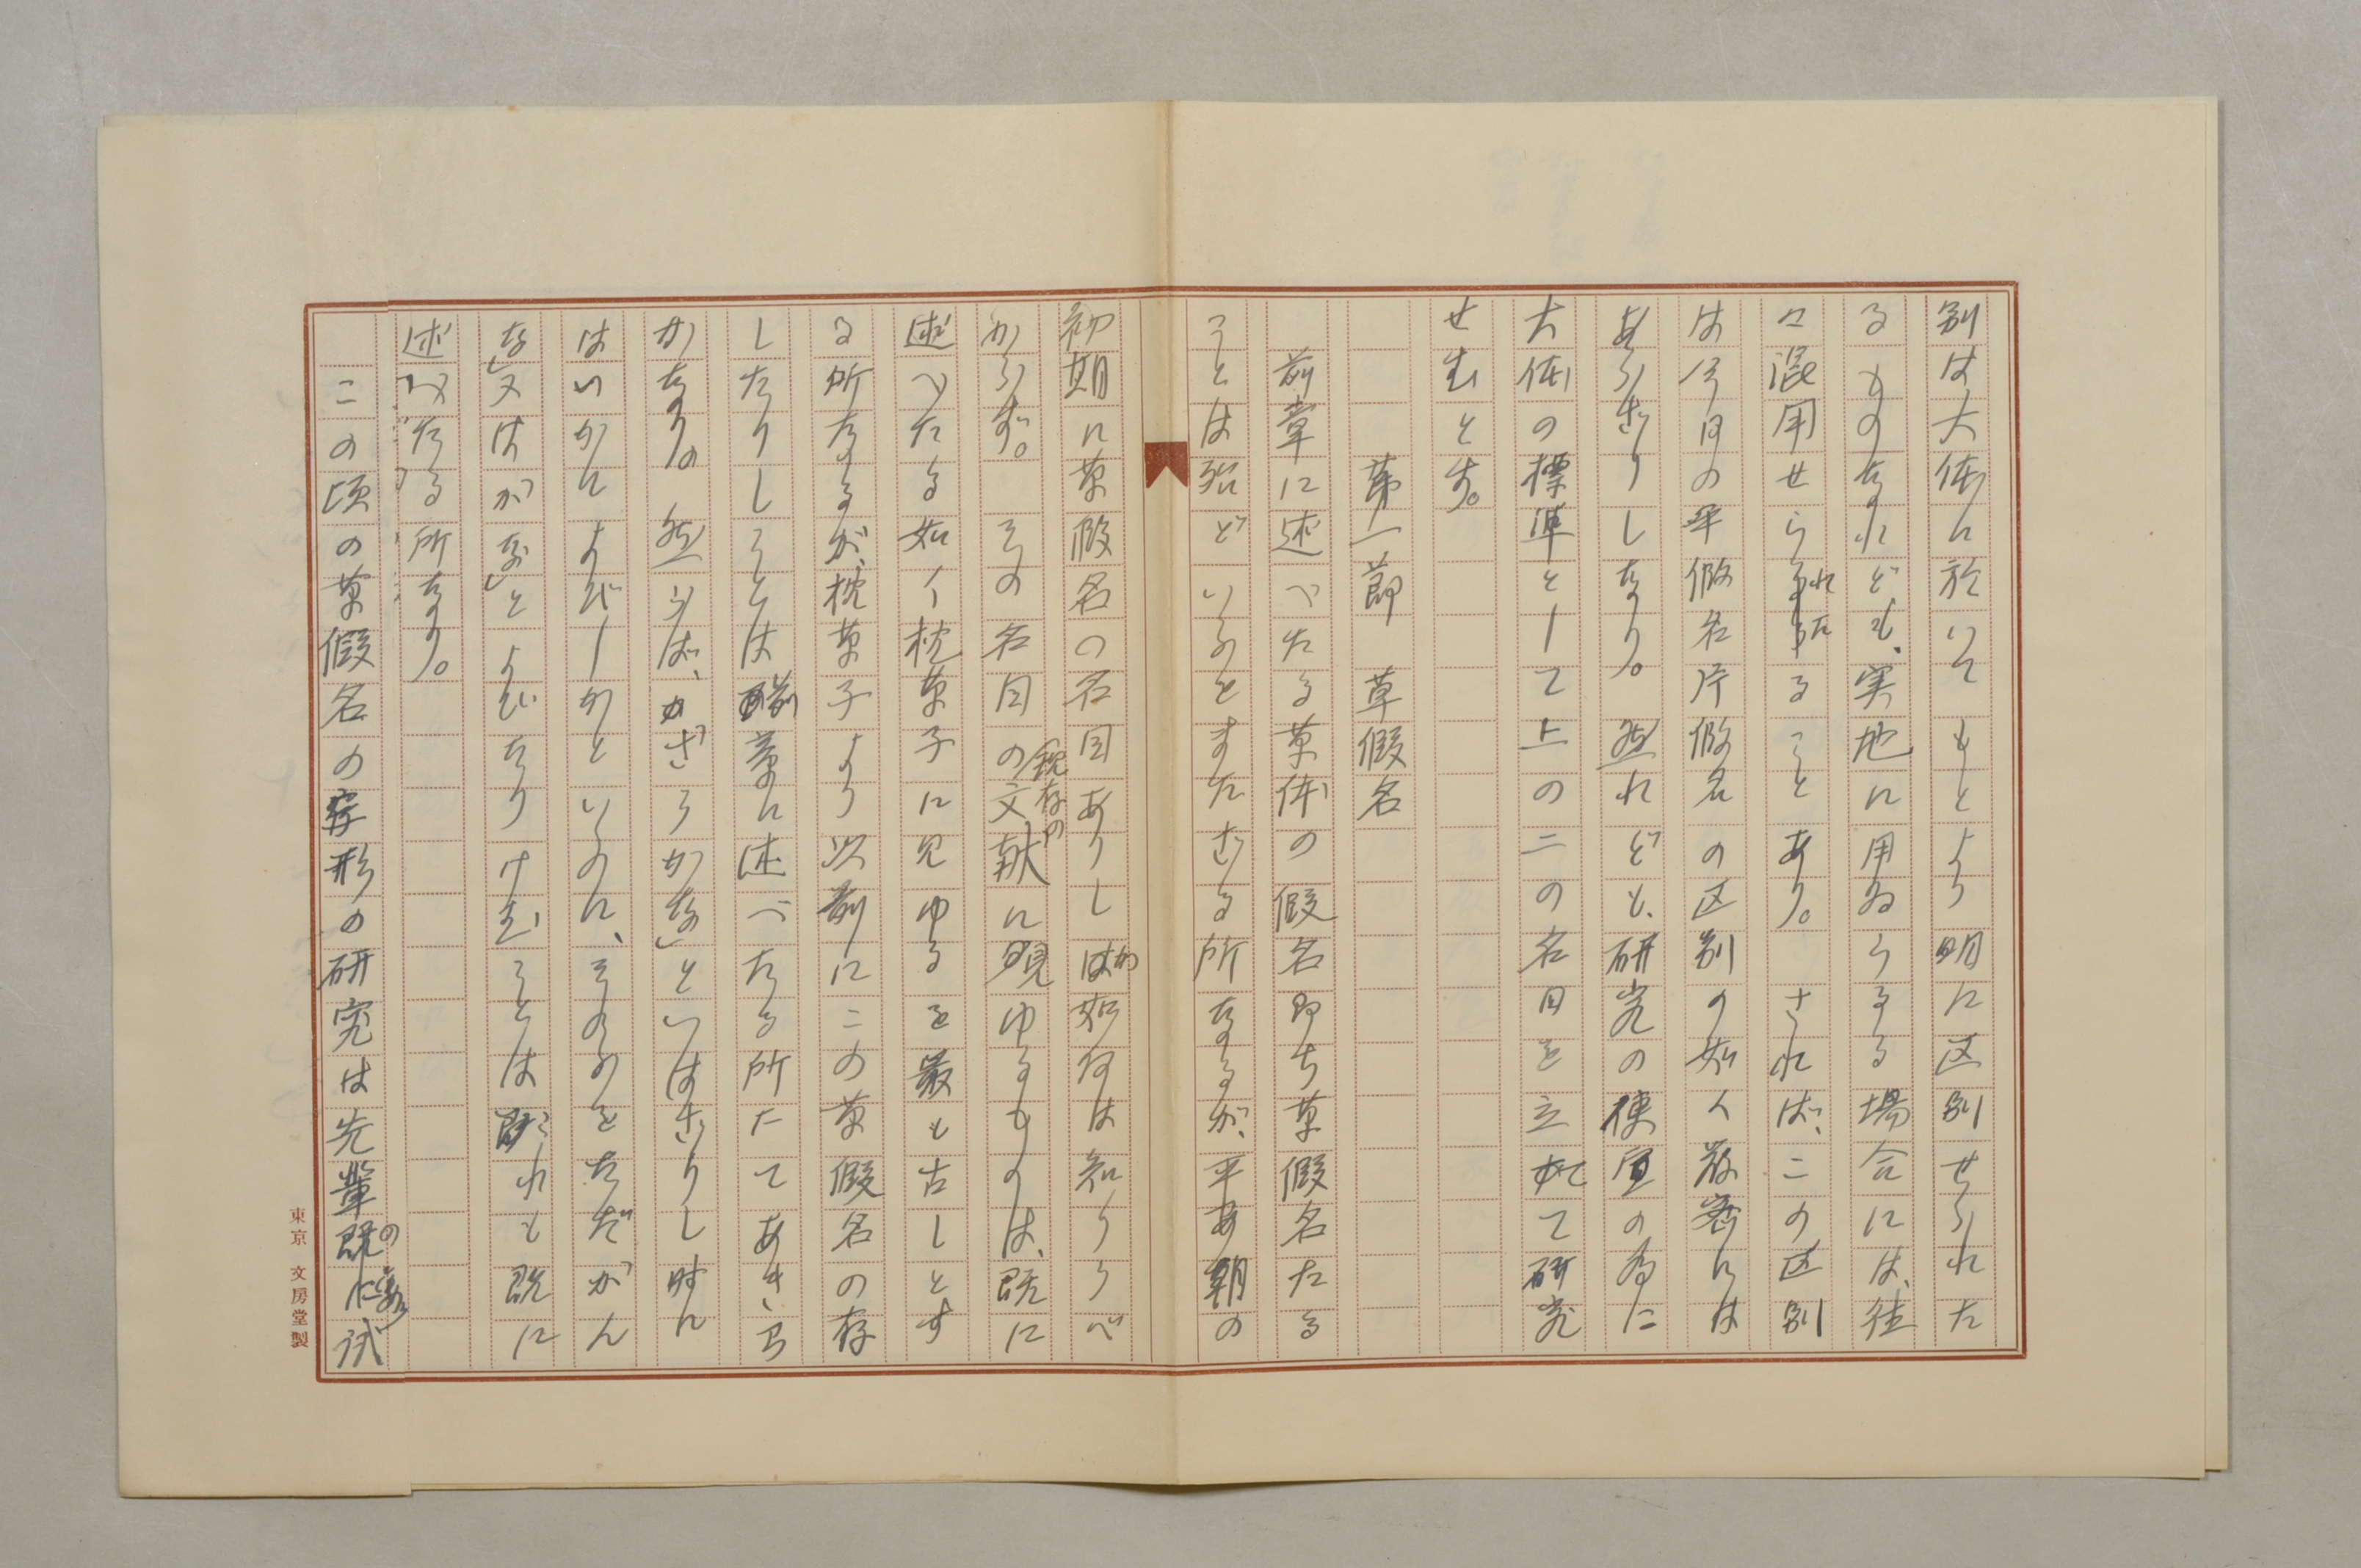 別は大体に於いてもとより明に区別せられた
るものなれども、実地に用ゐらるる場合には、往
々混用せられたることあり。されば、この区別
は今日の平仮名片仮名の区別の如く厳密には
あらざりしなり。然れども、研究の便宜の為に
大体の標準として上の二の名目を立てて研究
せむとす。
第一節 草假名
前章に述べたる草体の假名即ち草假名たる
ことは殆どいふをまたざる所なるが、平安朝の
初期に草假名の名目ありしか如何は知りうべ
からず。その名目の現存の文献に見ゆるものは、既に
述べたる如く枕草子に見ゆるを最も古しとす
る所なるが、枕草子より以前にこの草假名の存
したりしことは前章に述べたる所たてあきら
かなり。然らば、かざらかな」といはざりし時に
はいかによびしかといふに、そのかみをただかん
な」又はかな」とよびたりけむことはこれも既に
述べたる所なり。
この頃の草假名の字形の研究は先輩の既に試
東京 文房堂製